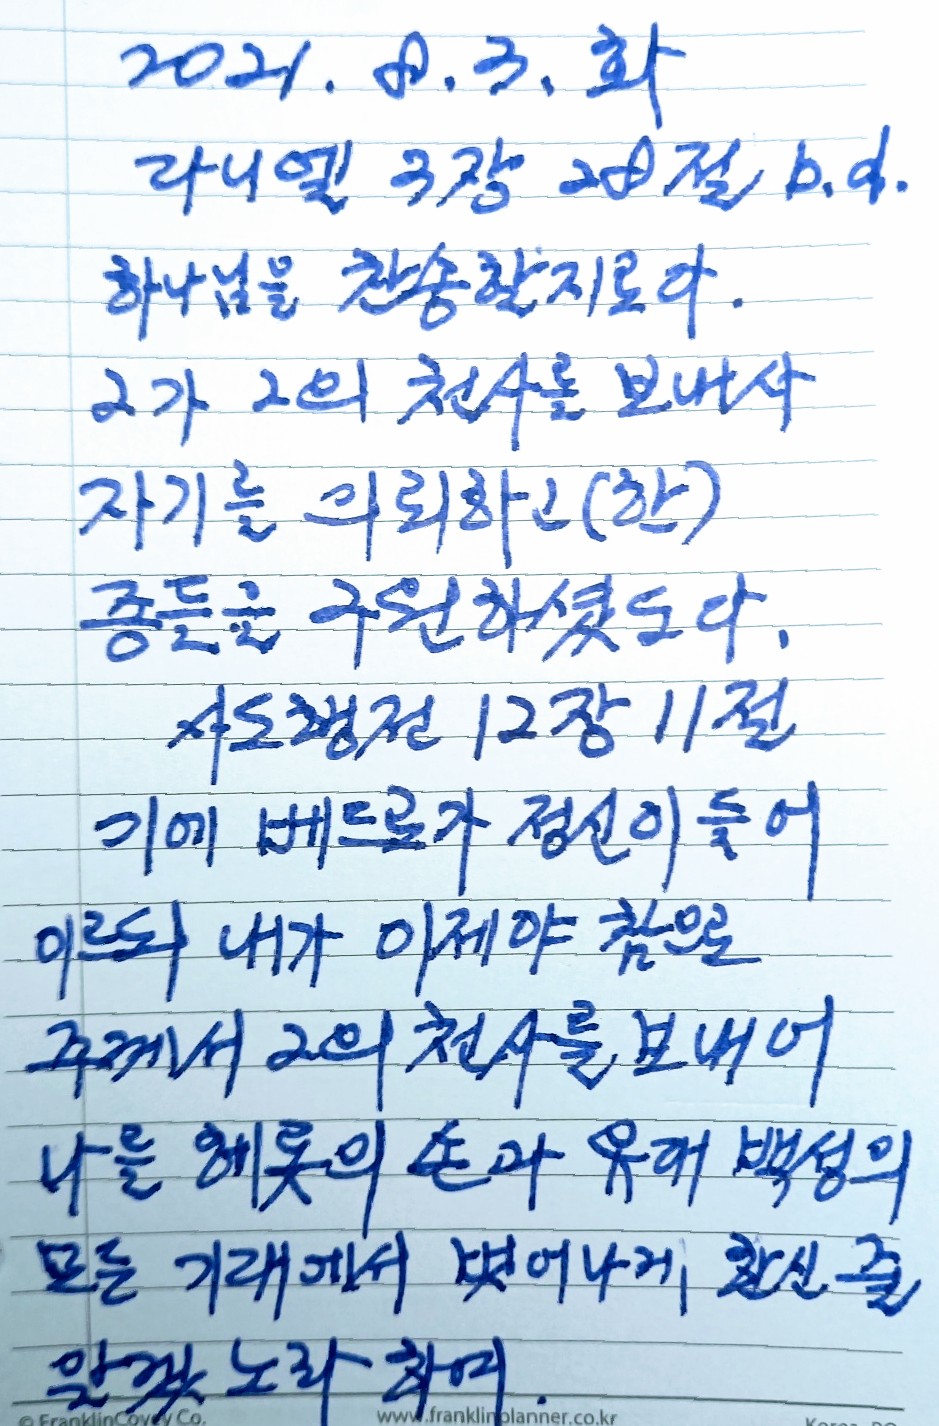 2021. 8. 3. 화
다니엘 3장 28절 b.d.
하나님을 찬송할지로다.
그가 그의 천사를 보내사
자기를 의뢰하고(한)
종들을 구원하셨도다.
사도행전 12장 11절
기에 베드로가 정신이 들어
이르되 내가 이제야 참으로
주께서 그의 천사를 보내어
나를 헤롯의 손과 유대 백성의
모든 기대에서 벗어나게 하신 줄
알겠노라 하여.
© FranklinCovey Co.
www.franklinplanner.co.kr